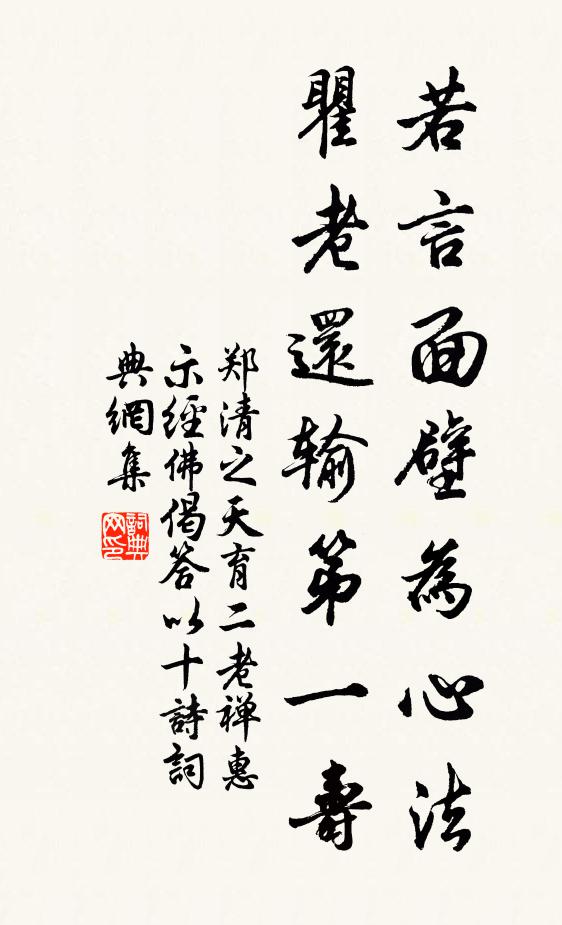 若言面壁為心法
瞿老還输第一壽
郑清之天育二老禅惠
示經佛偈答以十詩詞
典網集
詞典网印